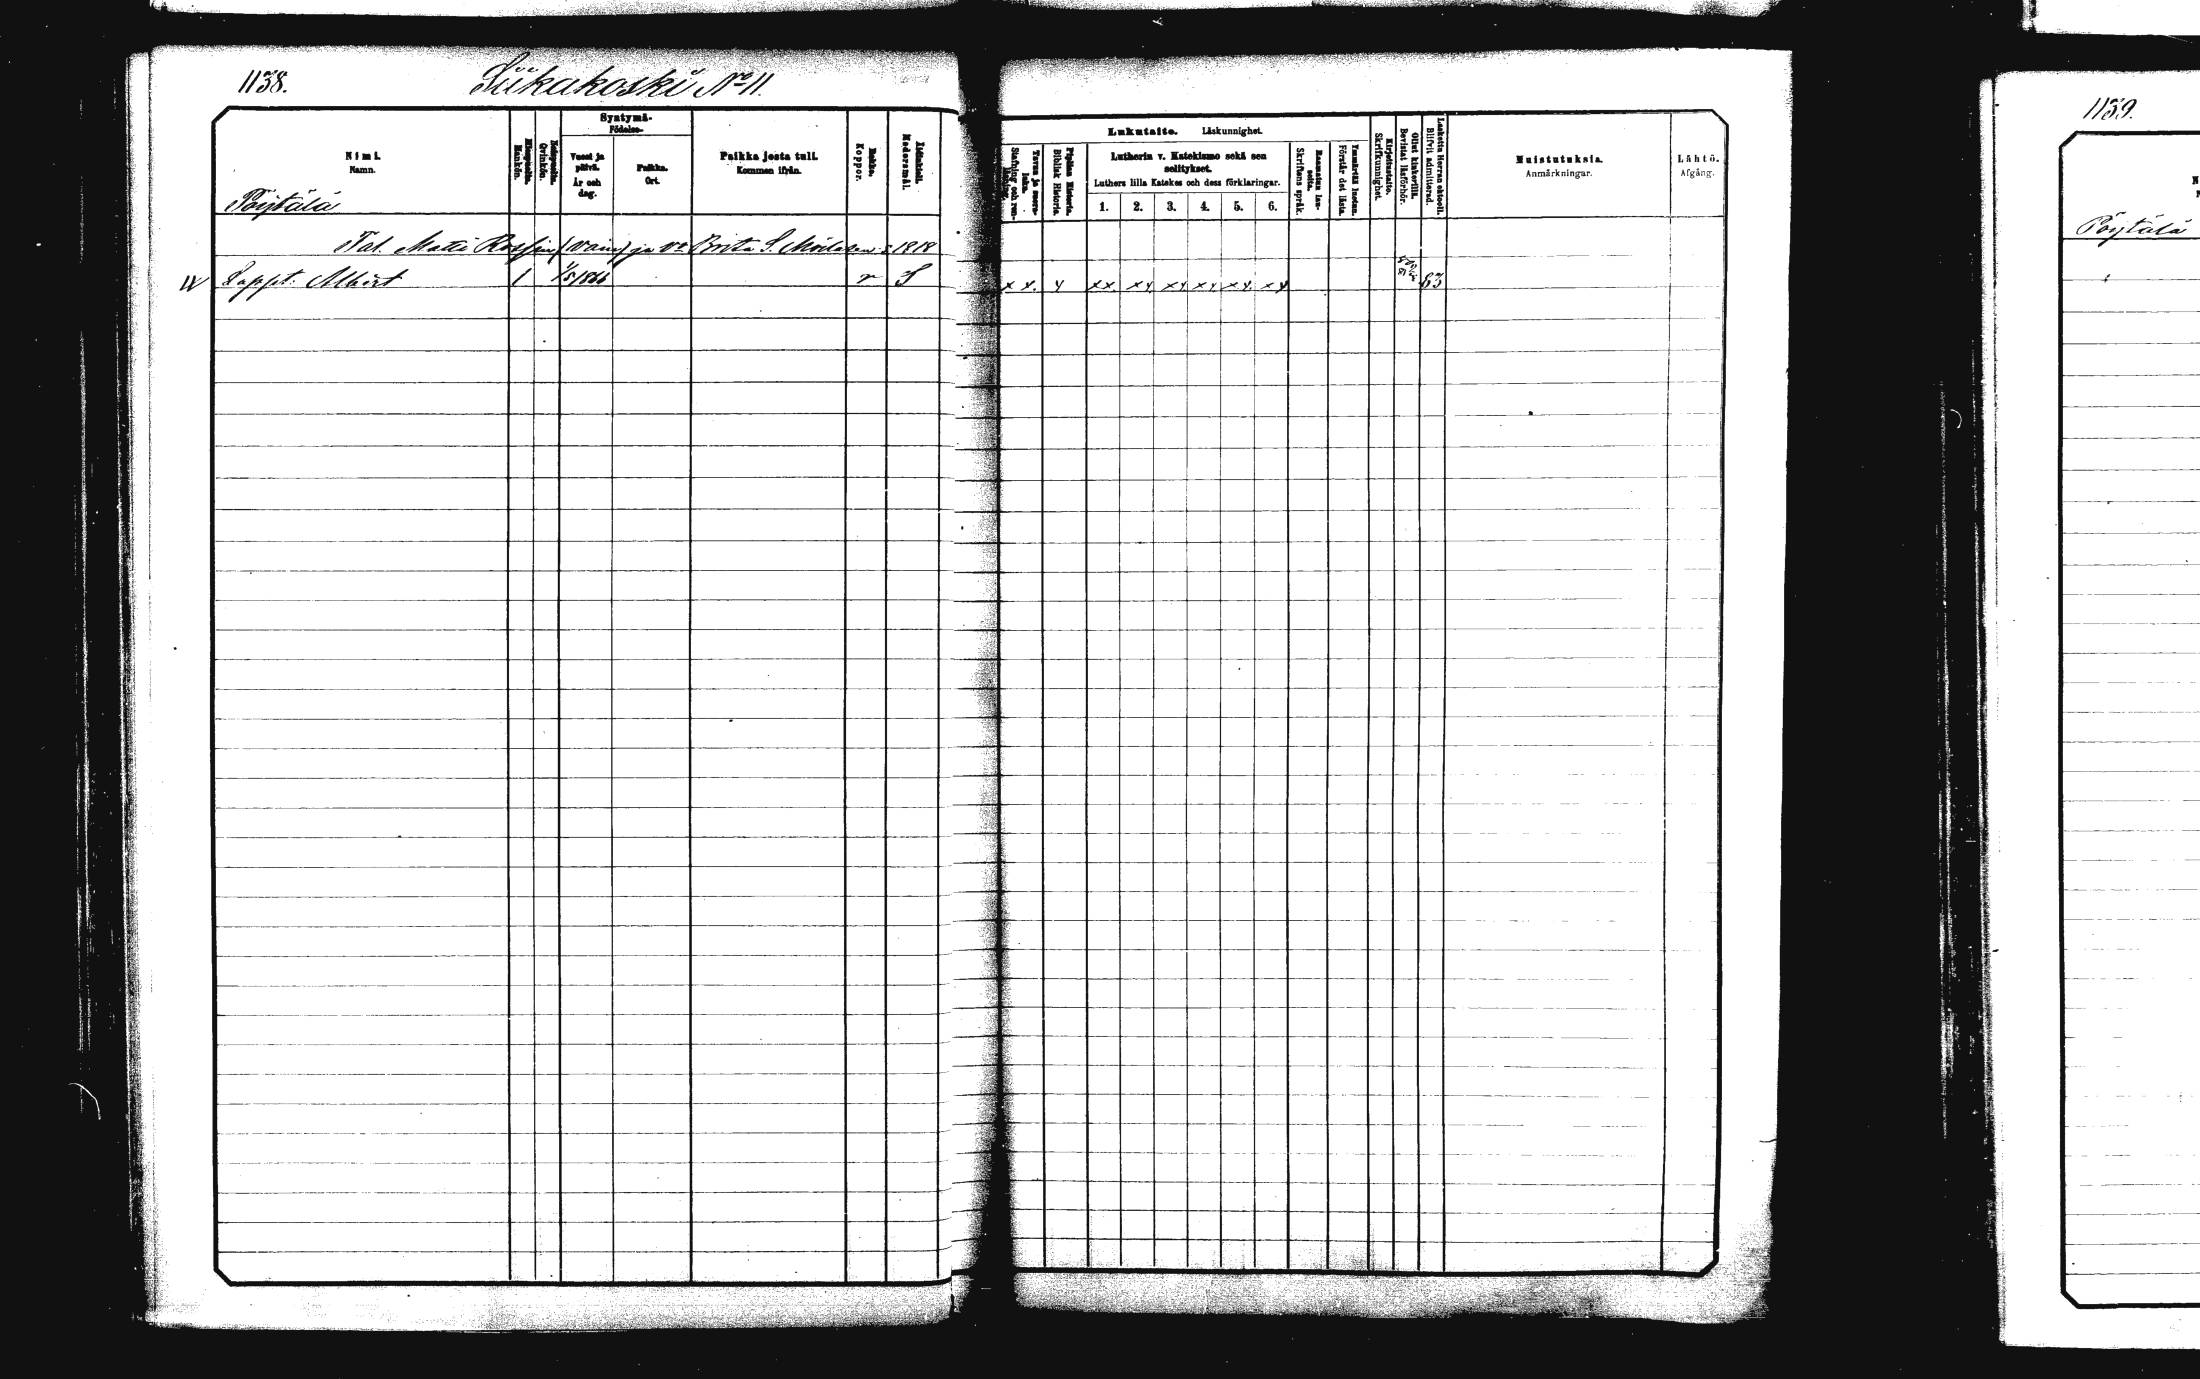 1138.
Siikakoski No 11.
Syntymä-
Födelse-
Nimi.
Namn.
Miespuolia.
Mankön.
Qvinkön.
Vuosi ja päivä.
År och dag.
Paikka.
Ort.
Paikka josta tuli.
Kommen ifrån.
Rokko.
Koppor.
Äidinkieli.
Modersmål.
Pöytälä
Tal. Matti (vain) ja Vo Brita S. s. 1818
IV Lapset: Albert 1 1/5 1866 r S
Lukutaito. Läskunnighet.
Tavaa ja
Stafning och
Piplian Historia.
Biblisk Historia.
Lutherin v. Katekismo sekä sen selitykset.
Luthers lilla Katekes och dess förklaringar.
1. 2. 3. 4. 5. 6.
Raamatun
Skriftens språk.
Ymmärtää luetun.
Förstår det lästa.
Kirjoitustaito.
Skrifkunnighet.
Ollut kinkerillä.
Bevistat läsförhör.
Laskettu Herran ehtooll.
Blifvit admitterad.
Muistutuksia.
Anmärkningar.
Lähtö.
Afgång.
x x. x xx. xx xx xx. xx. xx 83
1139.
Pöytälä